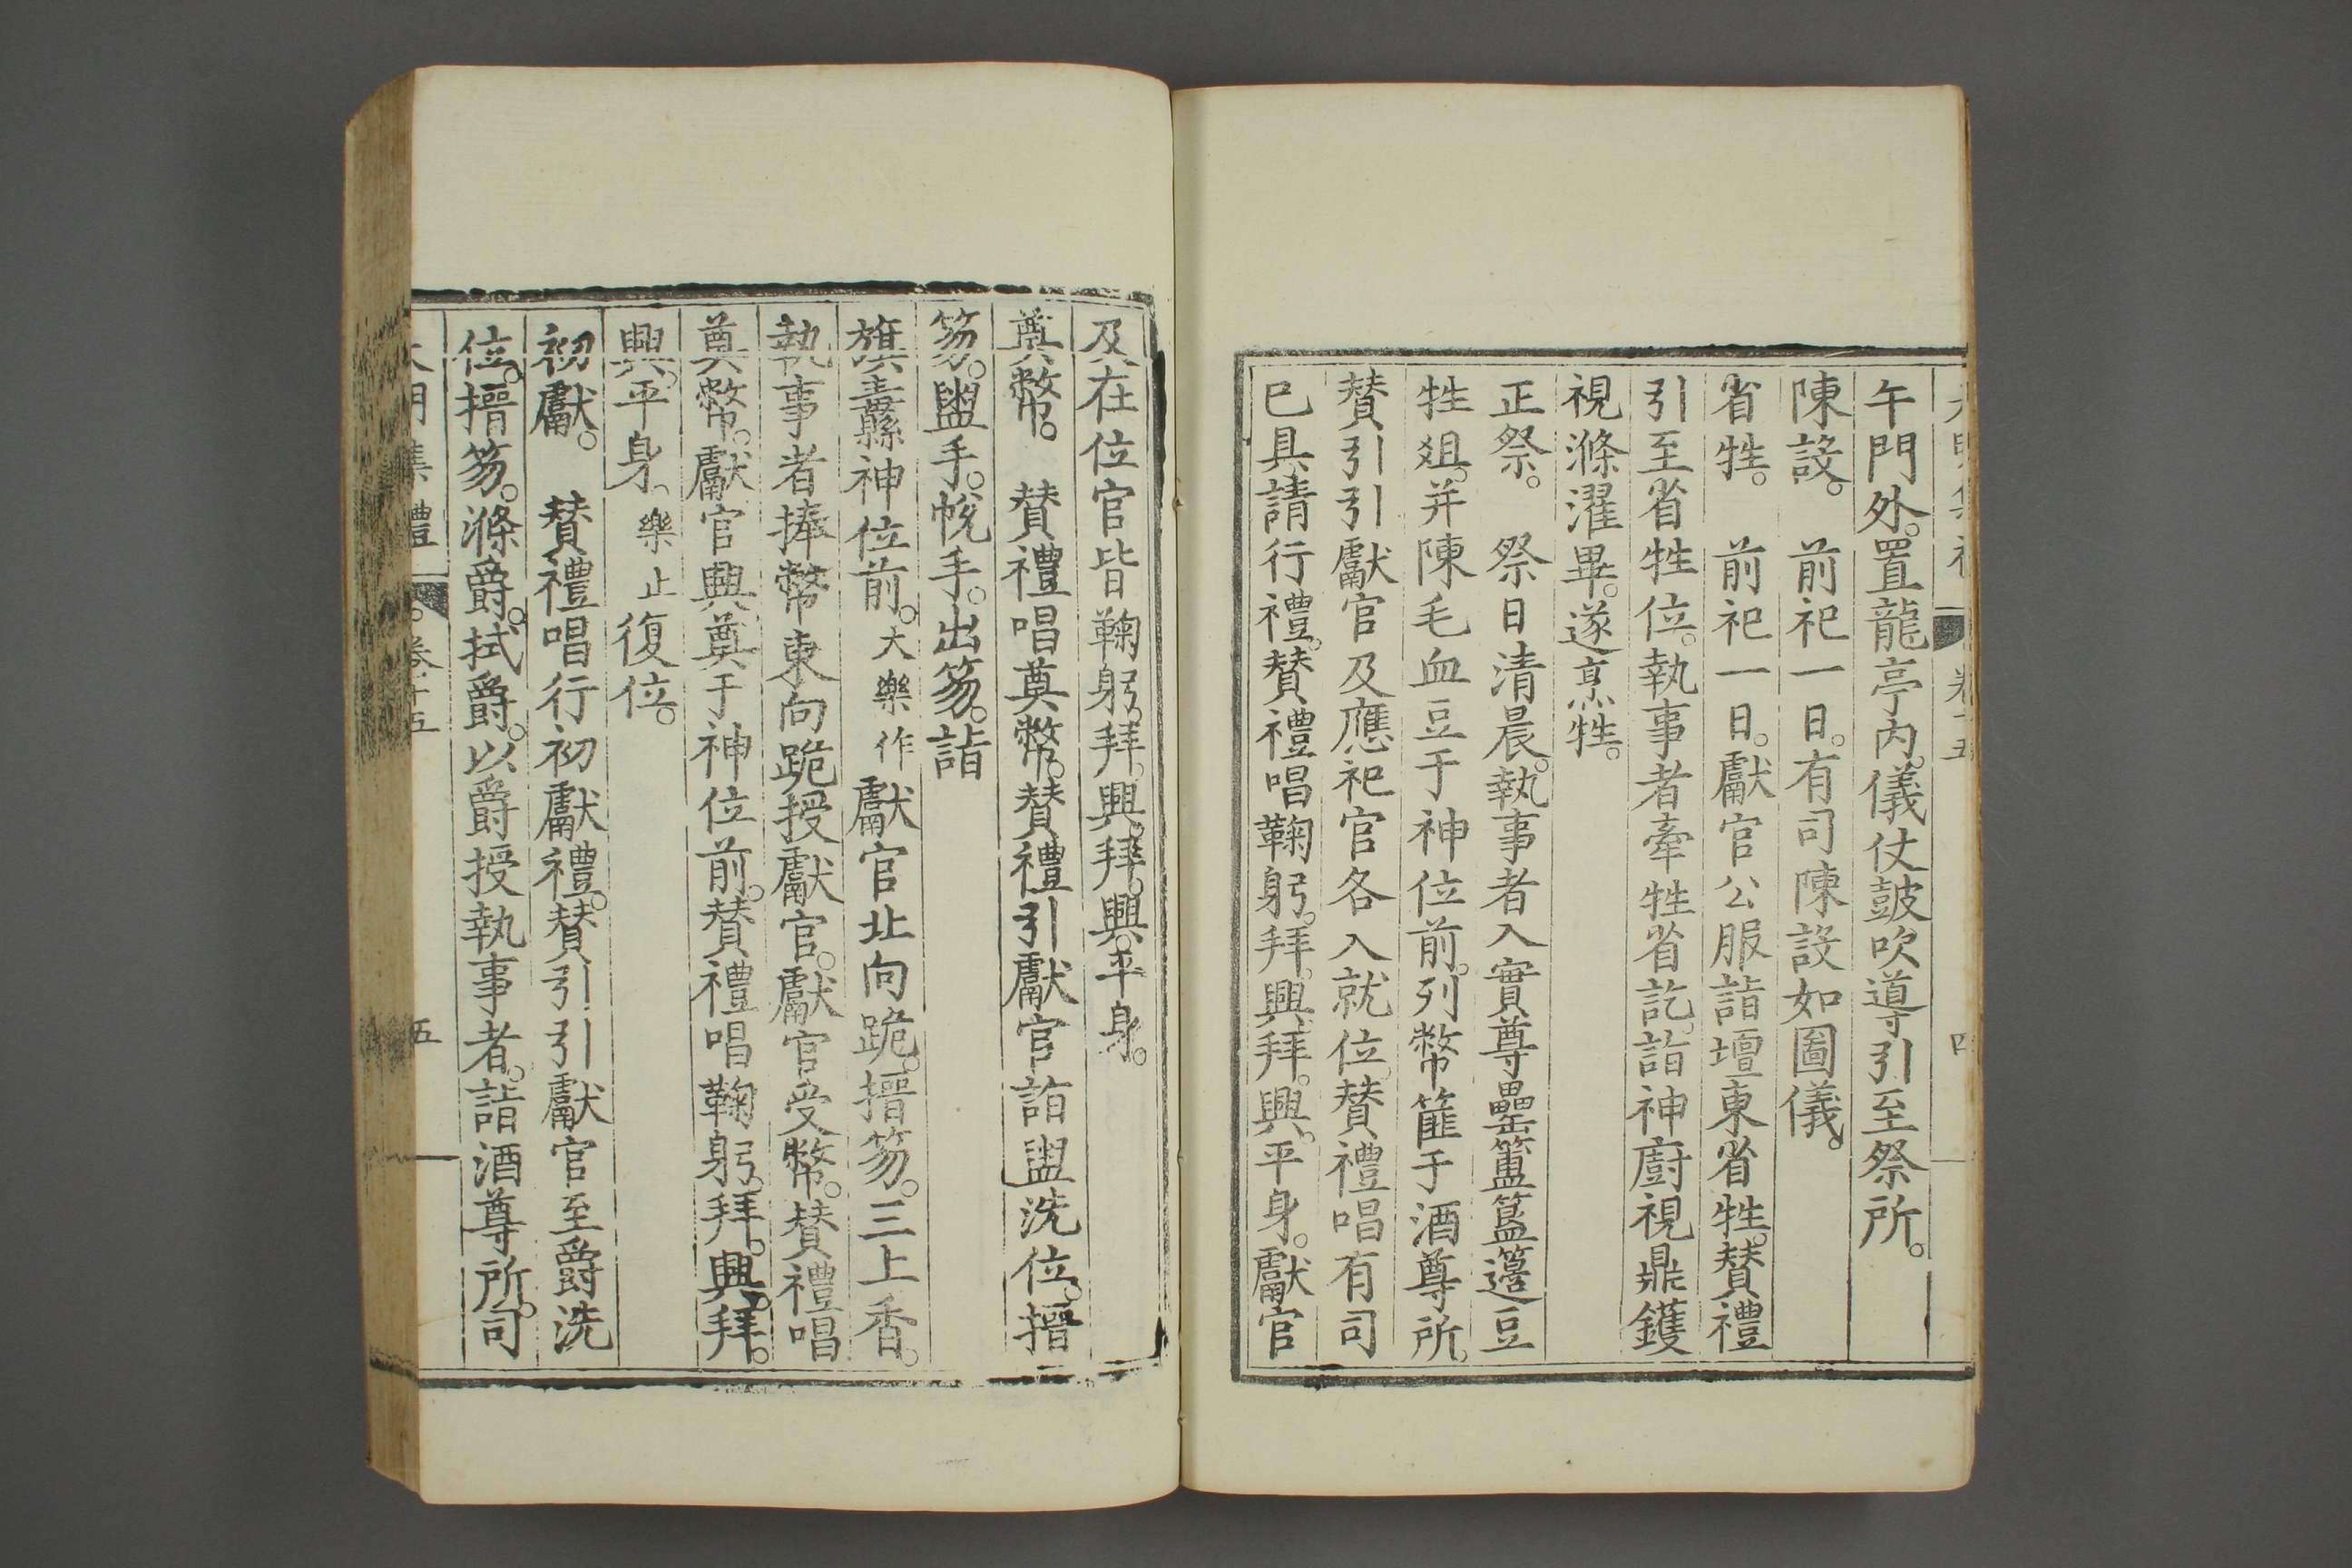 卷十五
四
午門外。置龍亭內。儀仗皷吹導引至祭所。
陳設。　前祀一日。有司陳設如圖儀。
省牲。　前祀一日。獻官公服詣壇東省牲。賛禮
引至省牲位。執事者牽牲省訖。詣神廚視鼎鑊
視滌濯畢。遂烹牲。
正祭。　祭日清晨。執事者入實尊罍簠簋籩豆
牲爼。并陳毛血豆于神位前。列幣篚于酒尊所。
賛引引獻官及應祀官各入就位。賛禮唱有司
已具請行禮。賛禮唱鞠躬。拜。興。拜。興。平身。獻官
及在位官皆鞠躬。拜。興。拜。興。平身。
奠幣。　賛禮唱奠幣。賛禮引獻官詣盥洗位。搢
笏。盥手。帨手。出笏。詣
旗纛神位前。大樂作獻官北向跪。搢笏。三上香。
執事者捧幣東向跪授獻官。獻官受幣。賛禮唱
奠幣。獻官興奠于神位前。賛禮唱鞠躬。拜。興。拜。
興。平身。樂止復位。
初獻。　賛禮唱行初獻禮。賛引引獻官至爵洗
位。搢笏。滌爵。拭爵。以爵授執事者。詣酒尊所。司
集禮
卷十五
五